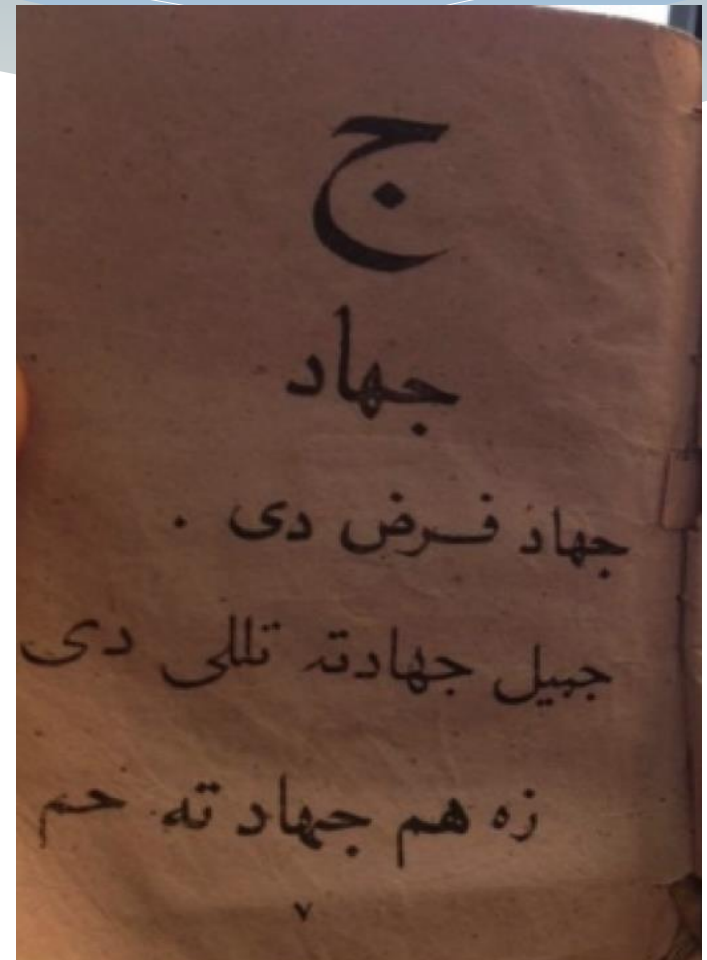 ج
جهاد
جهاد فرض دی .
جبيل جهادته تللی دی
زه هم جهاد ته حم
۷